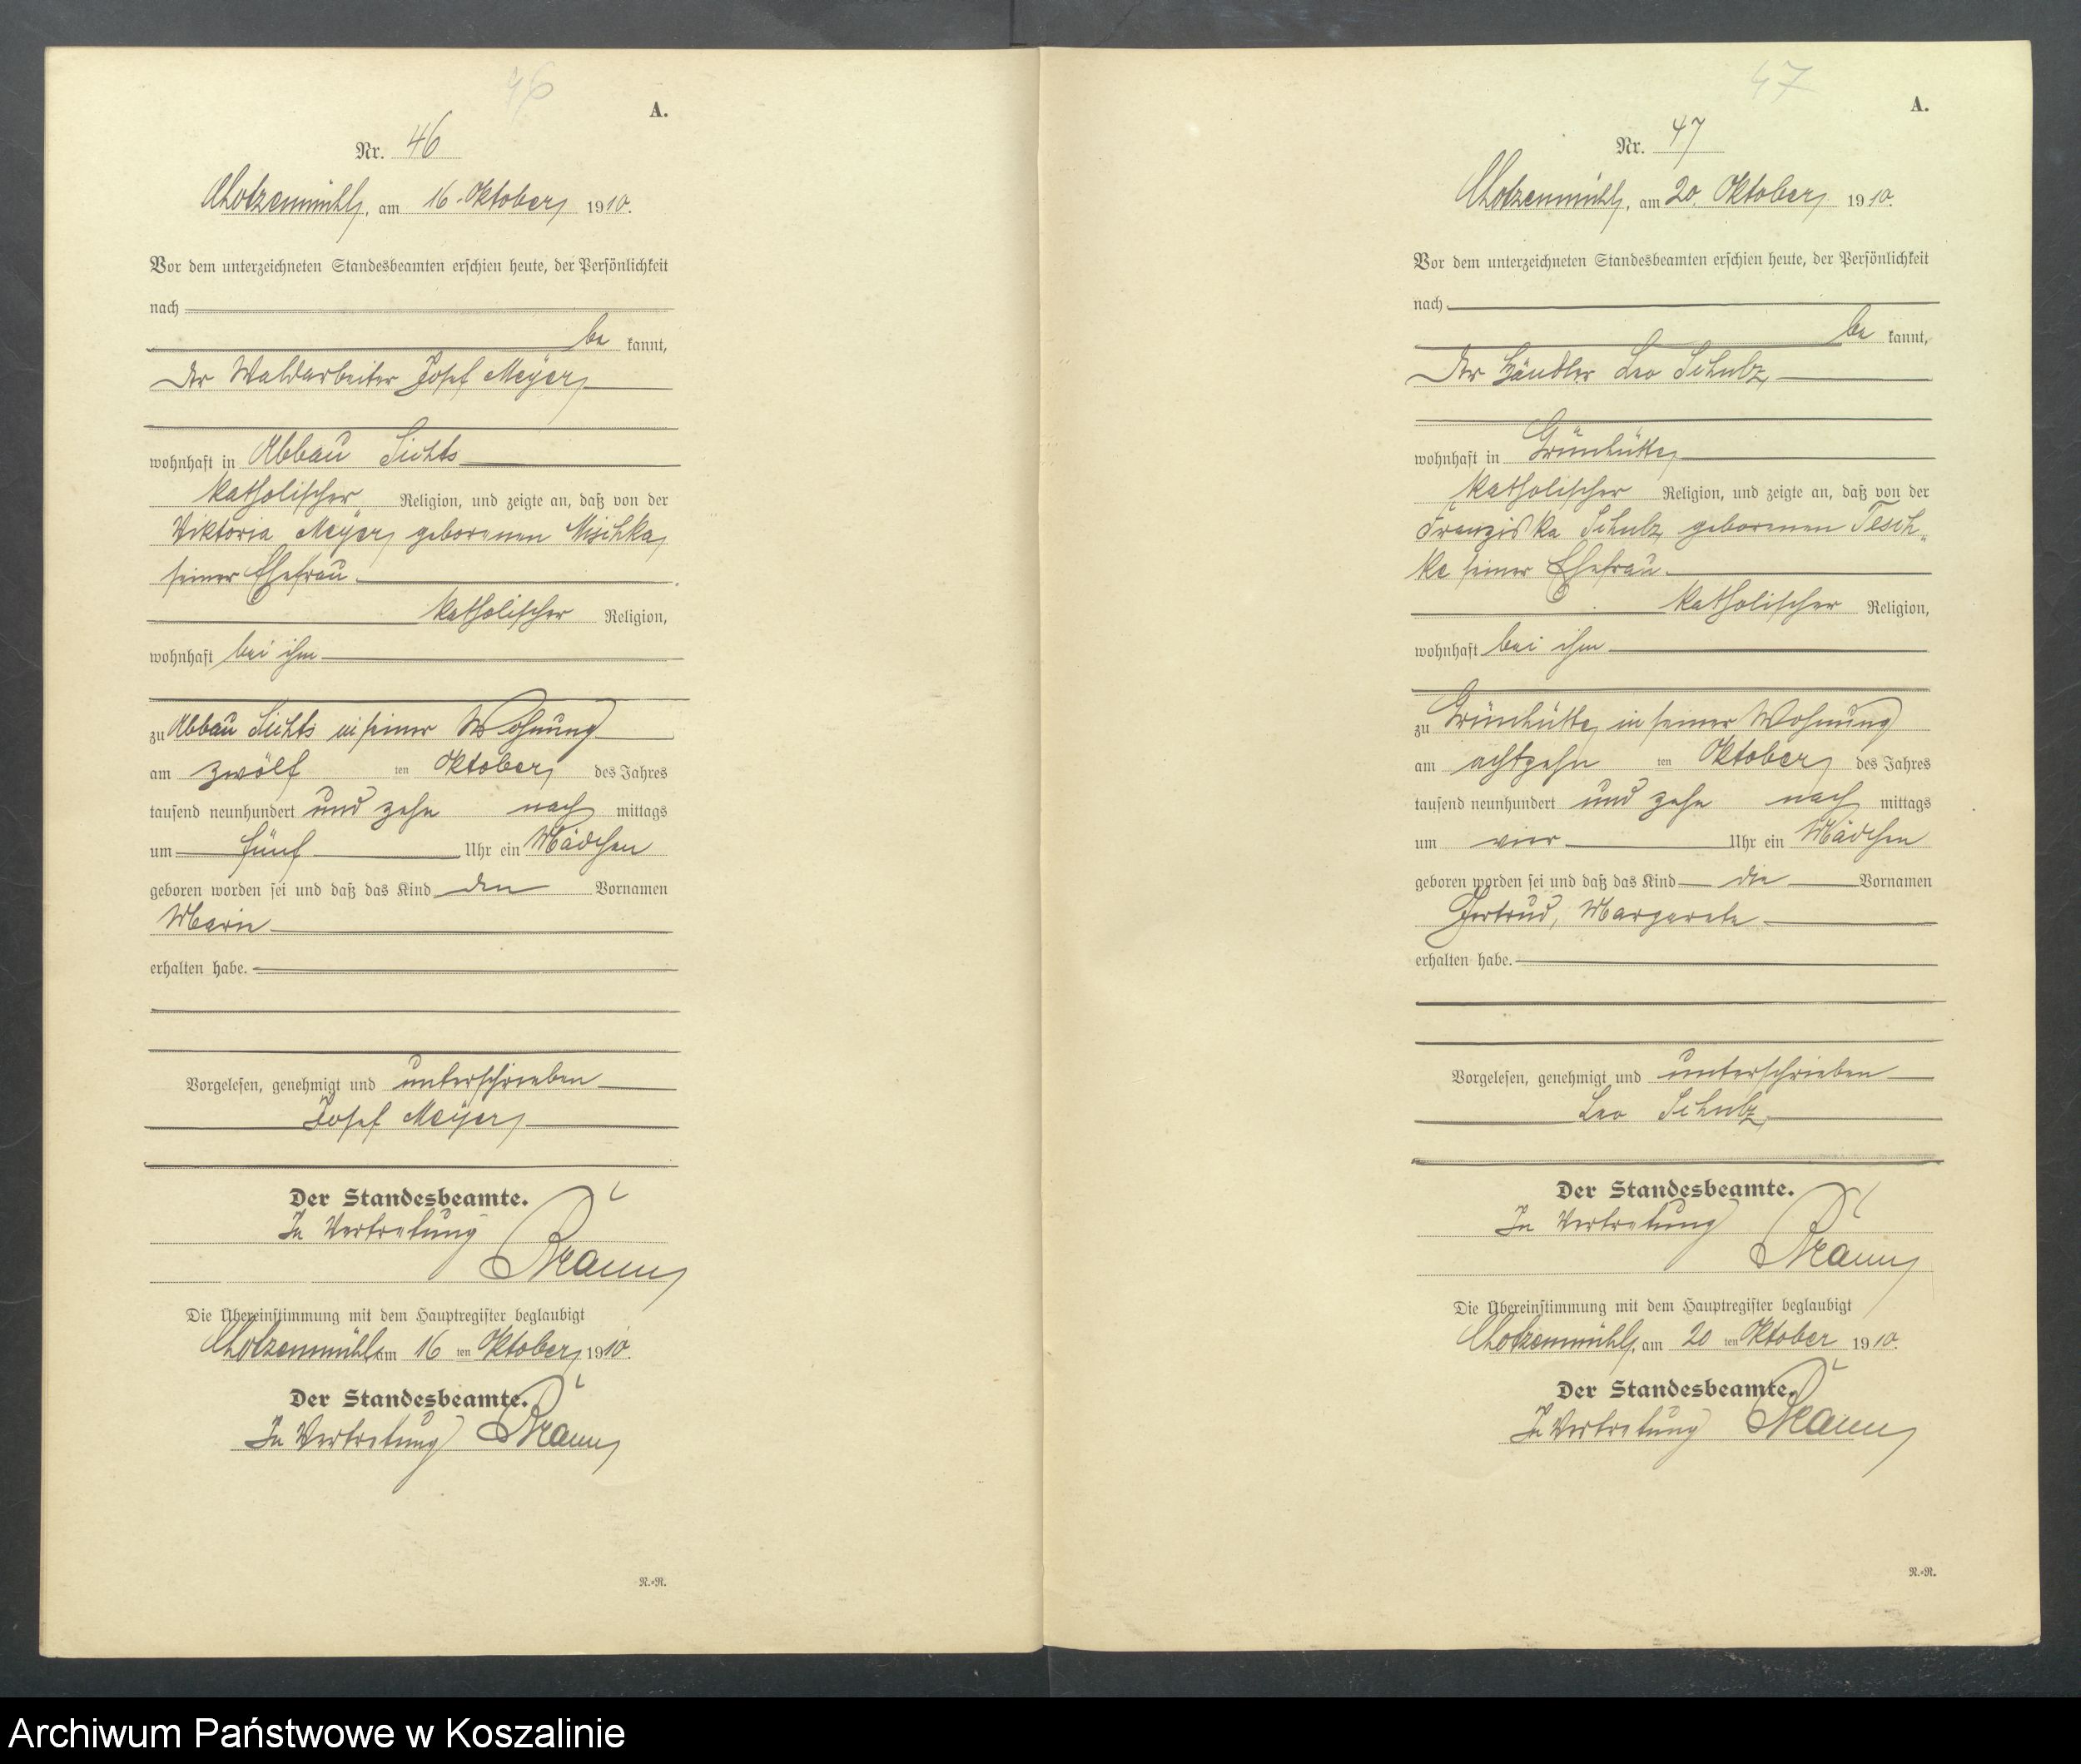 46
A.
Nr. 46
Chotzenmühl, am 16. Oktober 1910.
Vor dem unterzeichneten Standesbeamten erschien heute, der Persönlichkeit
nach
be kannt,
der Waldarbeiter Josef Meyer
wohnhaft in Abbau Lichts
katholischer Religion, und zeigte an, daß von der
Viktoria Meyer geborenen Mischka,
seiner Ehefrau
katholischer Religion,
wohnhaft bei ihm
zu Abbau Lichts in seiner Wohnung
am zwölf ten Oktober des Jahres
tausend neunhundert und zehn nach mittags
um fünf Uhr ein Mädchen
geboren worden sei und daß das Kind den Vornamen
Marie
erhalten habe.
Vorgelesen, genehmigt und unterschrieben
Josef Meyer
Der Standesbeamte.
In Vertretung
Die Übereinstimmung mit dem Hauptregister beglaubigt
Chotzenmühl, am 16 ten Oktober 1910.
Der Standesbeamte.
In Vertretung
R.-R.
47
A.
Nr. 47
Chotzenmühl, am 20. Oktober 1910.
Vor dem unterzeichneten Standesbeamten erschien heute, der Persönlichkeit
nach
be kannt,
der Händler Leo Schulz,
wohnhaft in Grünhütte
katholischer Religion, und zeigte an, daß von der
Franziska Schulz geborenen Tesch„
ke seiner Ehefrau
katholischer Religion,
wohnhaft bei ihm
zu Grünhütte in seiner Wohnung
am achtzehn ten Oktober des Jahres
tausend neunhundert und zehn nach mittags
um vier Uhr ein Mädchen
geboren worden sei und daß das Kind die Vornamen
Gertrud, Margarete
erhalten habe.
Vorgelesen, genehmigt und unterschrieben
Leo Schulz,
Der Standesbeamte.
In Vertretung
Die Übereinstimmung mit dem Hauptregister beglaubigt
Chotzenmühl, am 20 ten Oktober 1910.
Der Standesbeamte.
In Vertretung
R.-R.
Archiwum Państwowe w Koszalinie